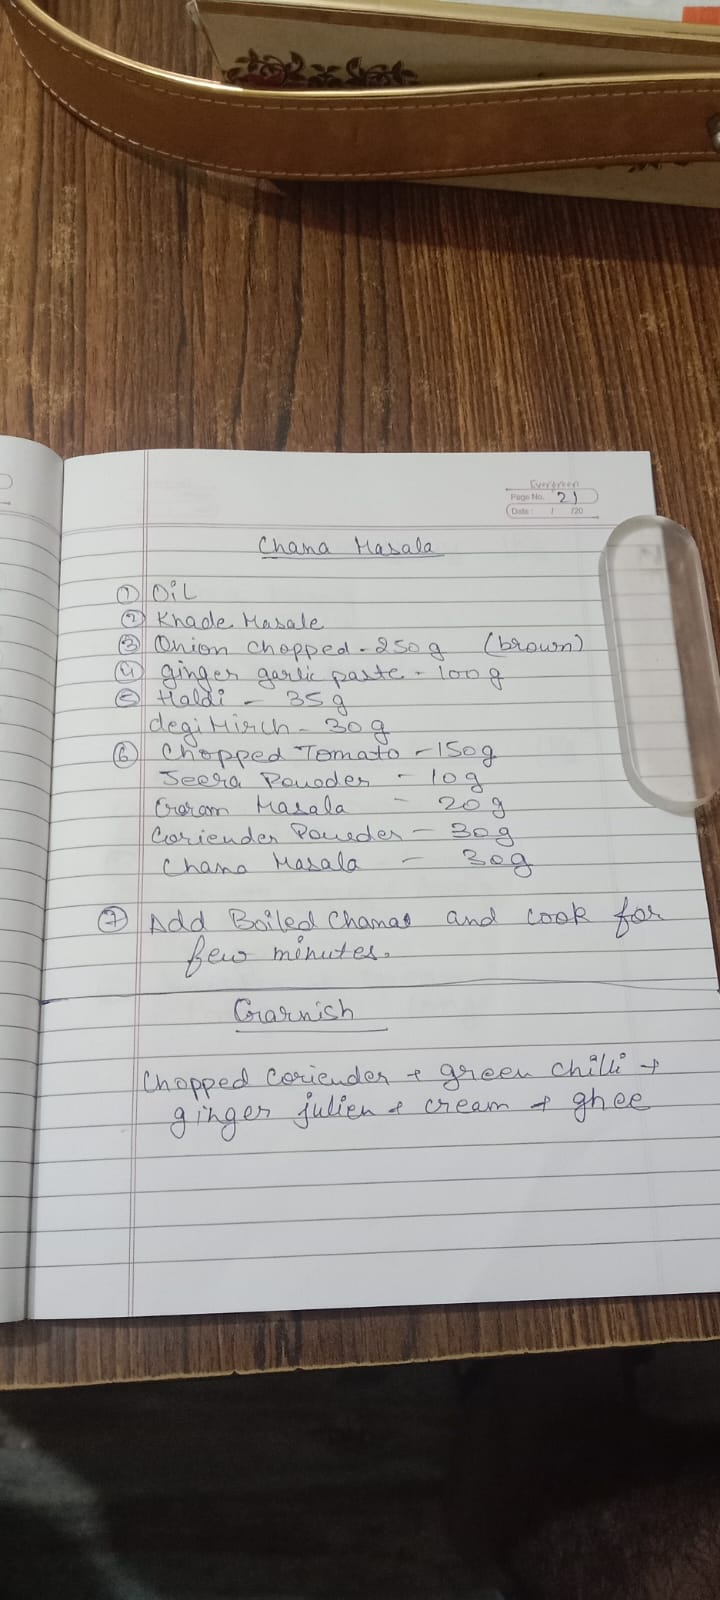 Evergreen
Page No. 21
Date : / /20
Chana Masala
① Oil
② Khade Masale
③ Onion Chopped - 250 g (brown)
④ ginger garlic paste - 100 g
⑤ Haldi - 35 g
degi Mirch - 30 g
⑥ Chopped Tomato - 150g
Jeera Powder - 10 g
Garam Masala - 20 g
Coriender Powder - 30g
Chana Masala - 30g
⑦ Add Boiled Chanas and cook for
few minutes.
Garnish
Chopped Coriender + green chilli +
ginger julien + cream + ghee